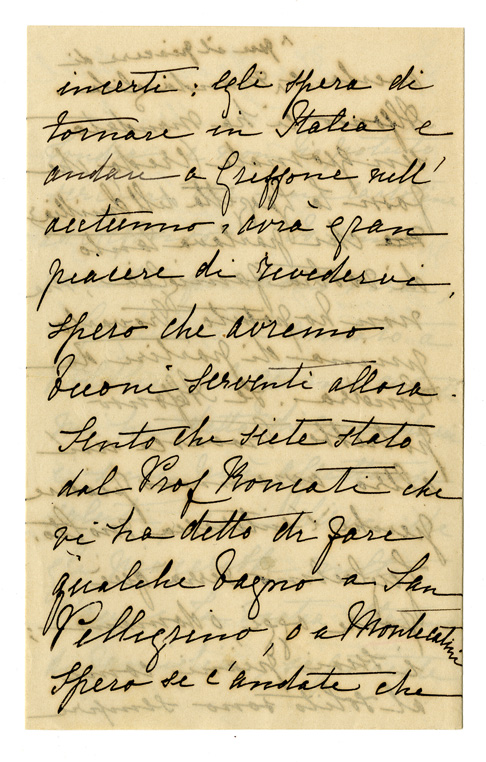 incerti; Egli spera di
tornare in Italia e
andare a Griffone nell'
autunno, avrà gran
piacere di rivedervi,
spero che avremo
buoni serventi allora.
Sento che siete stato
dal Prof Roncati che
vi ha detto di fare
qualche bagno a San
Pellegrino, o a Montecatini
spero se c'andate che